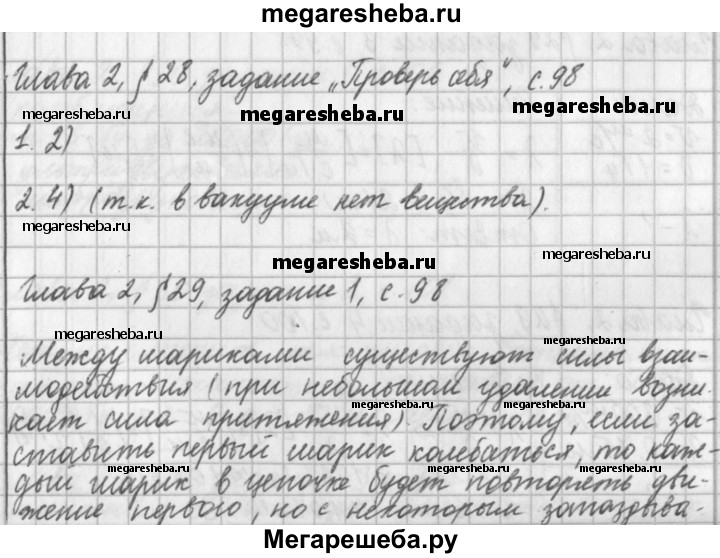 megaresheba.ru
Глава 2, § 28, задание „Проверь себя", с. 98
megaresheba.ru megaresheba.ru megaresheba.ru
1. 2)
2. 4) (т.к. в вакууме нет вещества).
megaresheba.ru megaresheba.ru
megaresheba.ru
Глава 2, § 29, задание 1, с. 98
megaresheba.ru megaresheba.ru
Между шариками существуют силы взаи-
модействия (при небольшом удалении возни-
megaresheba.ru megaresheba.ru
кает сила притяжения). Поэтому, если за-
ставить первый шарик колебаться, то каж-
megaresheba.ru megaresheba.ru megaresheba.ru
дый шарик в цепочке будет повторять дви-
жение первого, но с некоторым запаздыва-
Мегарешеба.ру